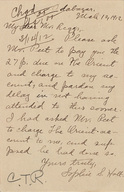 March 14, 1912
My dear Mr.
Please ask
Mr. Post to pay you the
27 p. due on the Orient
and charge to my ac-
count, and pardon my
delay in not having
attended to this sooner.
I had asked Mr. Post
to charge the Orient ac-
count to me, and sup-
posed he had done so
Yours truly,
Sophie S. Holt